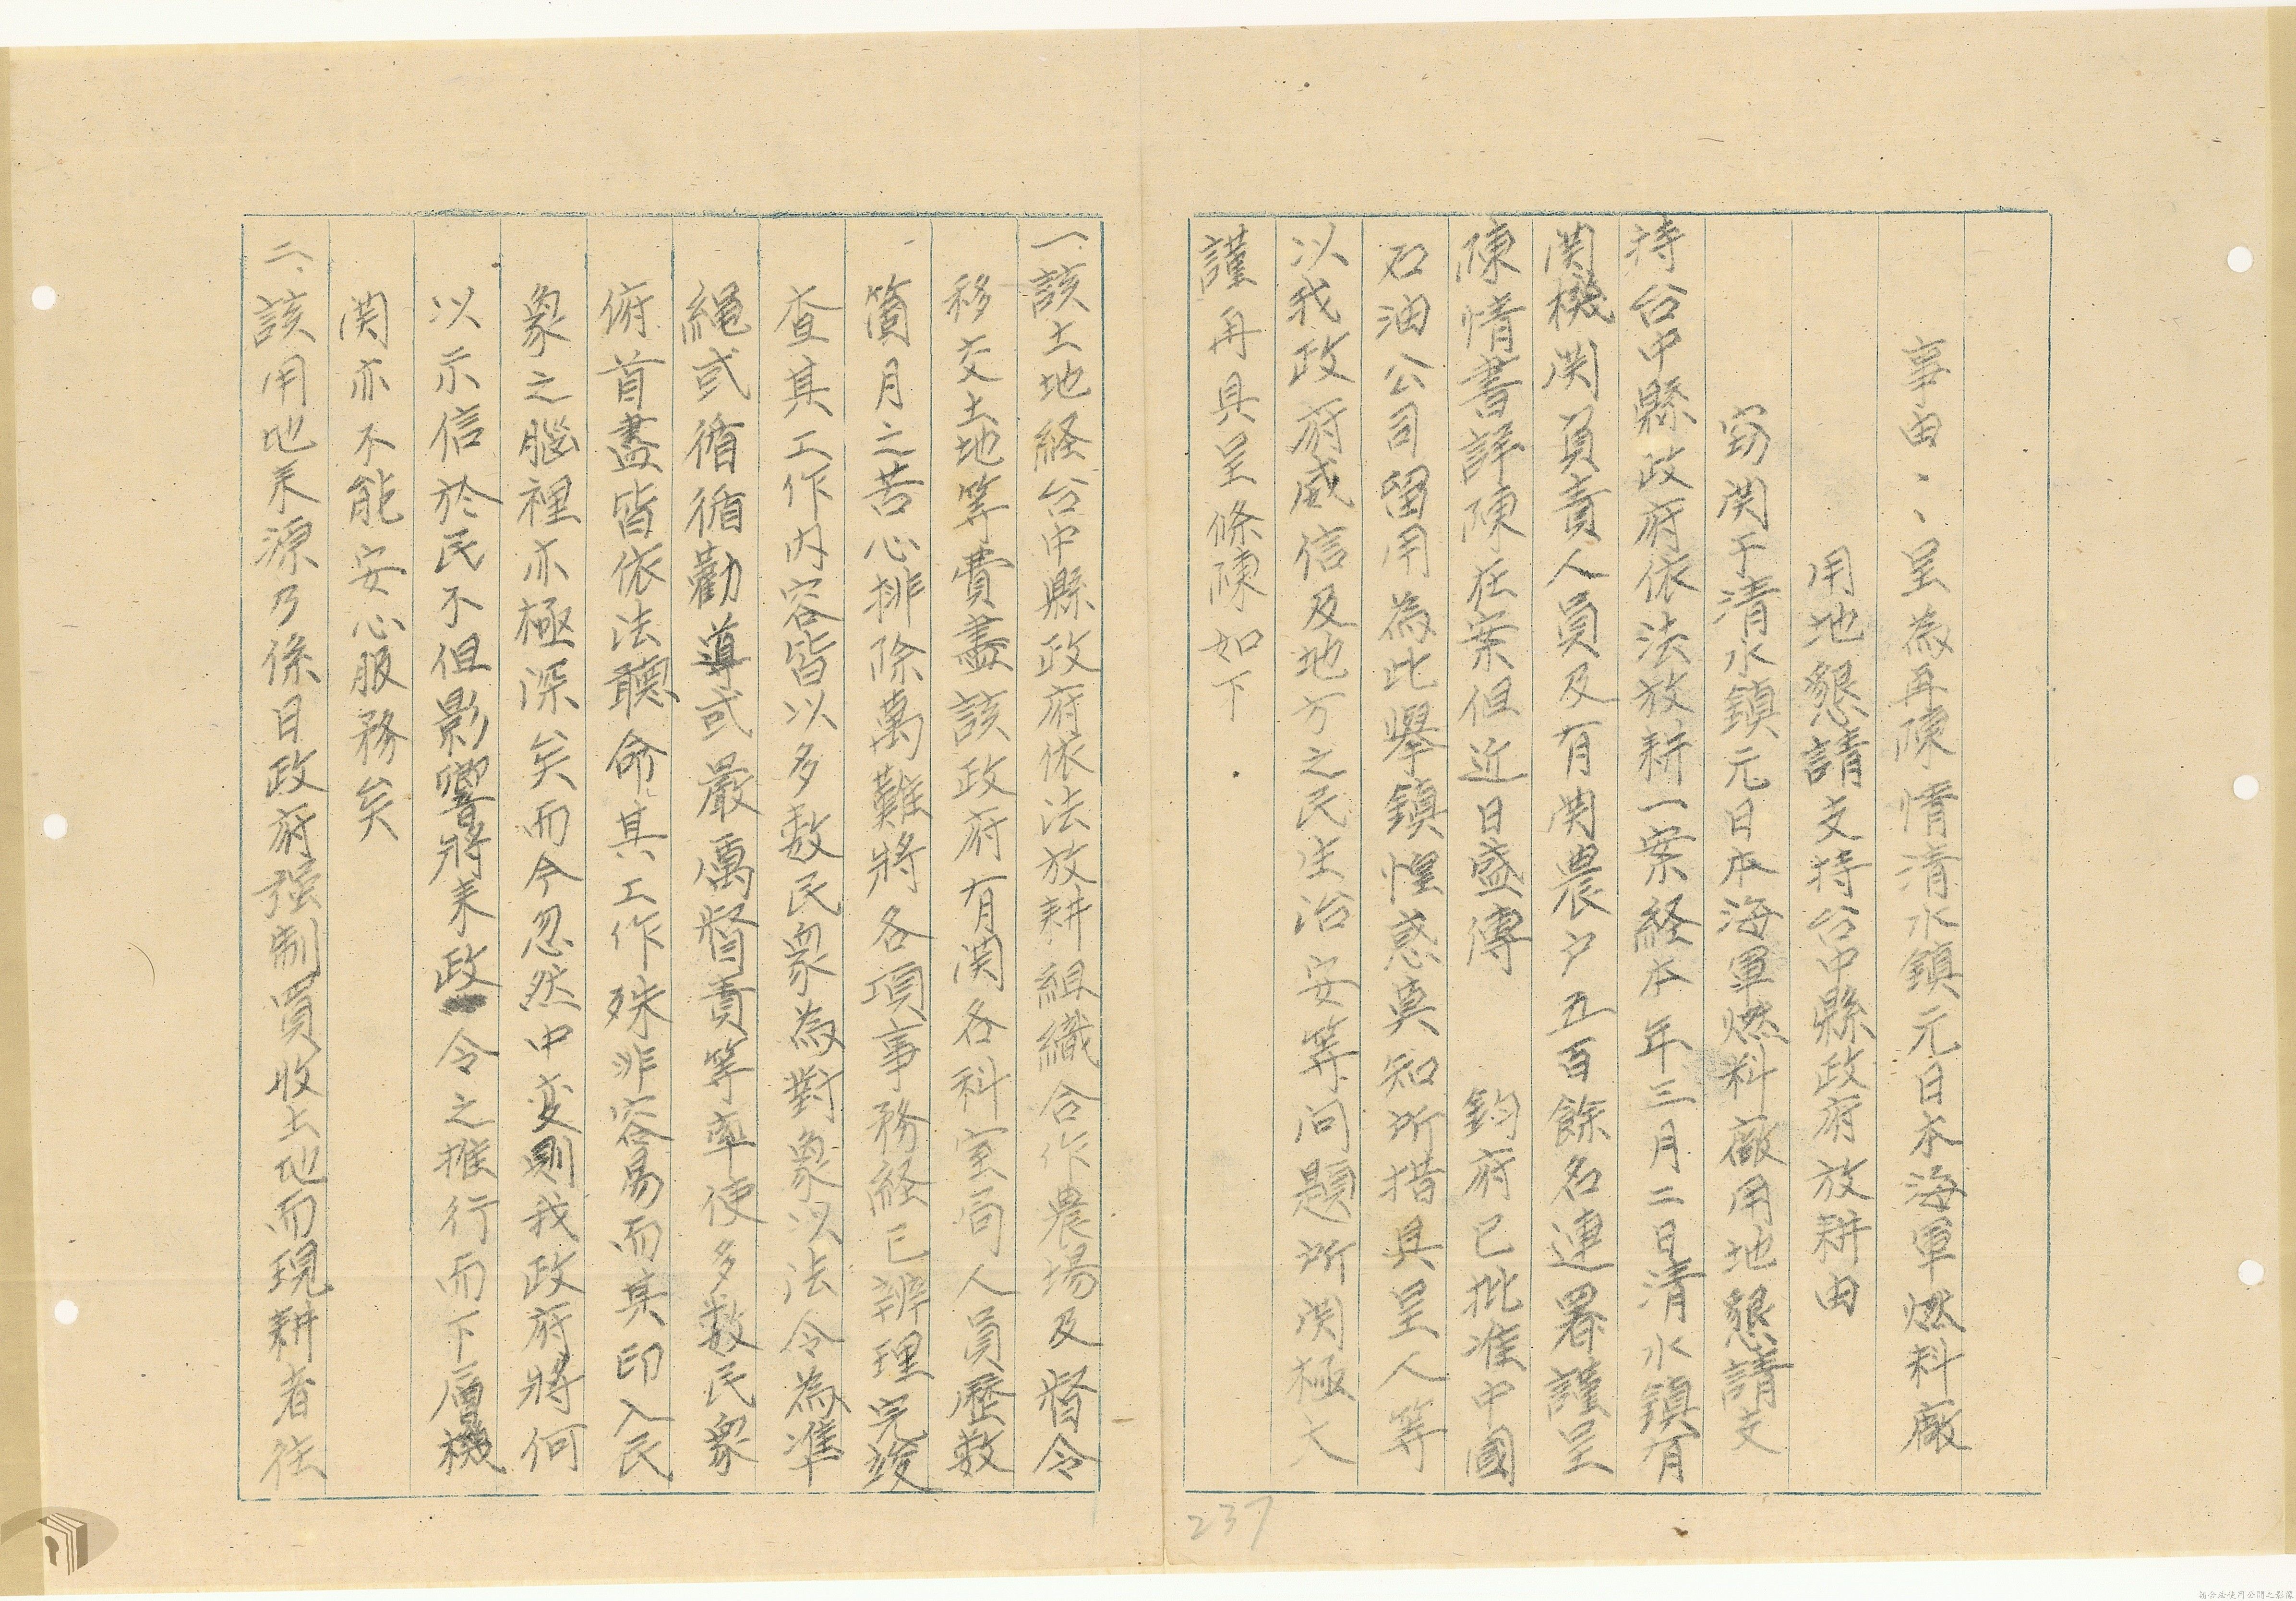 事由：呈為再陳情清水鎮元日本海軍燃料廠
用地懇請支持台中縣政府放耕由
窃関于清水鎮元日本海軍燃料廠用地懇請支
持台中縣政府依法放耕一案経本年三月二日清水鎮有
関機関負責人員及有関農戶五百餘名連署謹呈
陳情書詳陳在案但近日盛傳　鈞府已批准中國
石油公司留用為此舉鎮惶惑莫知所措具呈人等
以我政府威信及地方之民生治安等问題所関極大
謹再具呈條陳如下
一、該土地経台中縣政府依法放耕組織合作農場及督令
移交土地等費盡該政府有関各科室局人員歷数
箇月之苦心排除萬難將各項事務経已辦理完竣
查其工作内容皆以多数民衆為對象以法令為準
繩或循循勸導或嚴厲督責等率使多数民衆
俯首盡皆依法聽命其工作殊非容易而其印入民
象之腦裡亦極深矣而今忽然中变則我政府將何
以示信於民不但影響將来政令之推行而下層機
関亦不能安心服務矣
二、該用地来源乃係日政府强制買收土地而現耕者往
237
請合法使用公開之影像